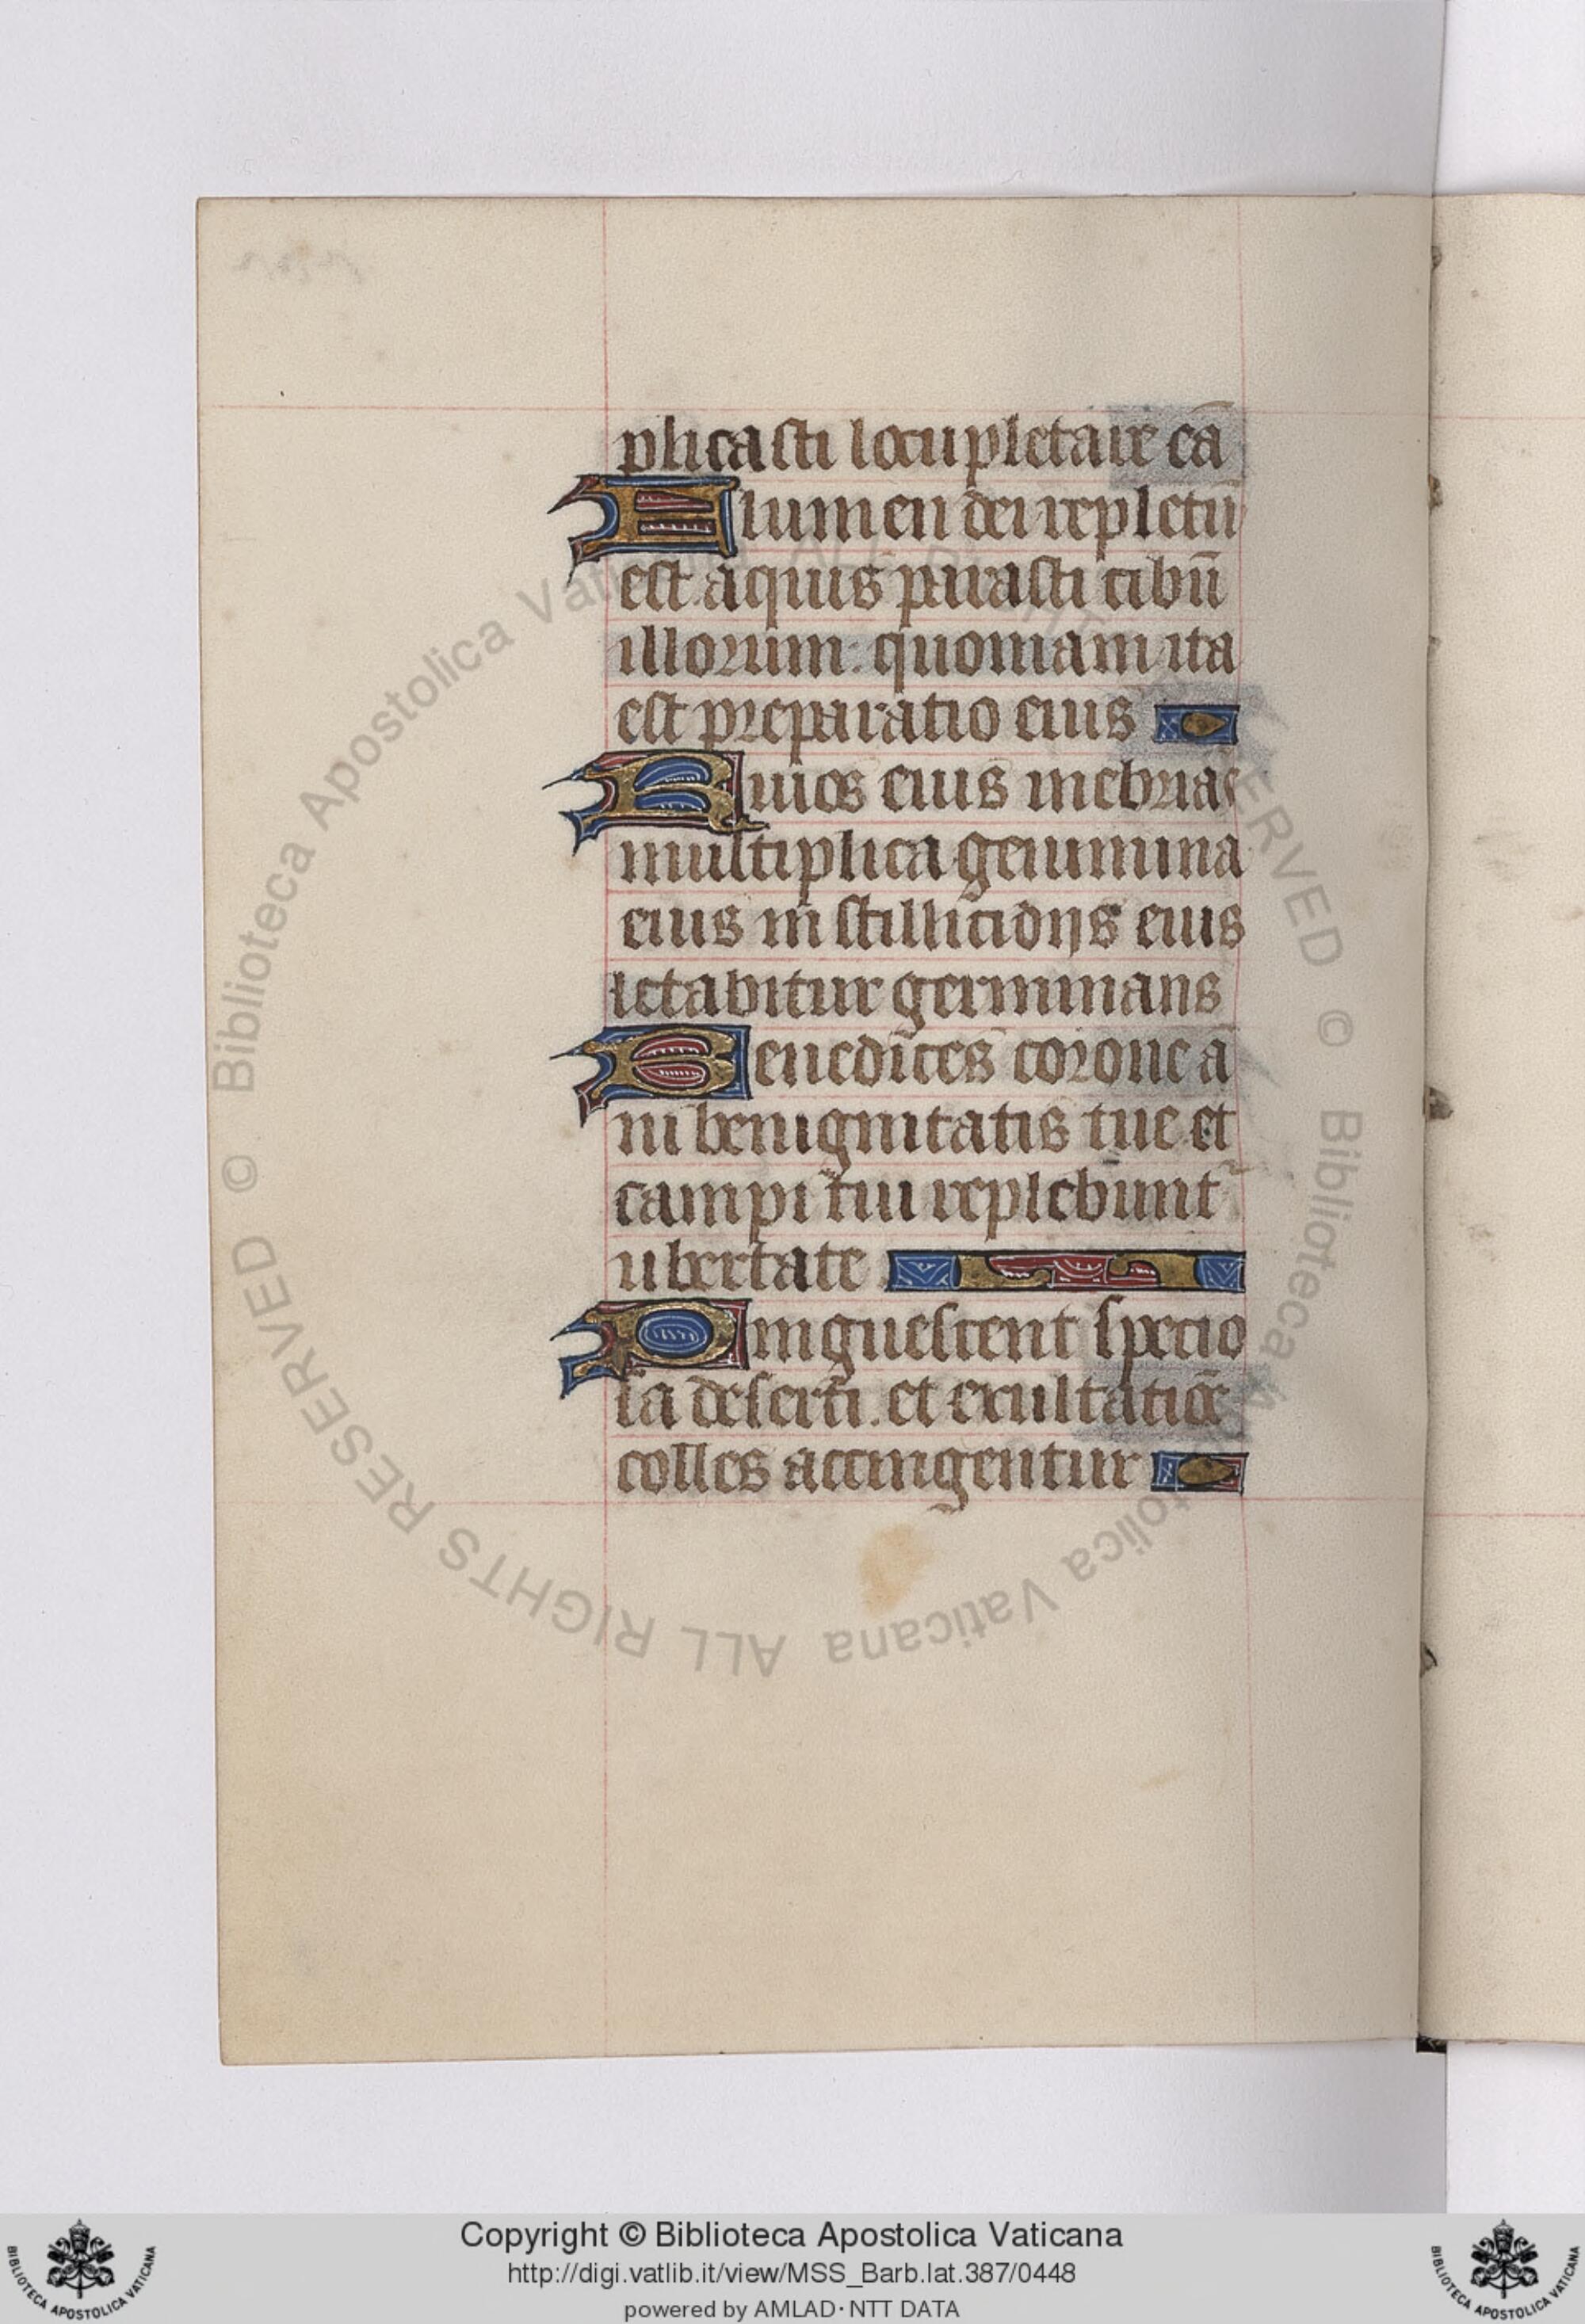 plicasti locupletare eā
Flumen dei repletū
est aquis parasti cibū
illorum: quoniam ita
est preparatio eius
Riuos eius inebrias
multiplica genimina
eius in stillicidijs eius
letabitur germinans
Benedices corone a
ni benignitatis tue et
campi tui replebunt
ubertate
Pinguescent specio
sa deserti. et exultatiōe
colles accingentur
© Biblioteca Apostolica Vaticana ALL RIGHTS RESERVED © Biblioteca Apostolica Vaticana ALL RIGHTS RESERVED
BIBLIOTECA APOSTOLICA VATICANA
Copyright © Biblioteca Apostolica Vaticana
http://digi.vatlib.it/view/MSS_Barb.lat.387/0448
powered by AMLAD·NTT DATA
BIBLIOTECA APOSTOLICA VATICANA